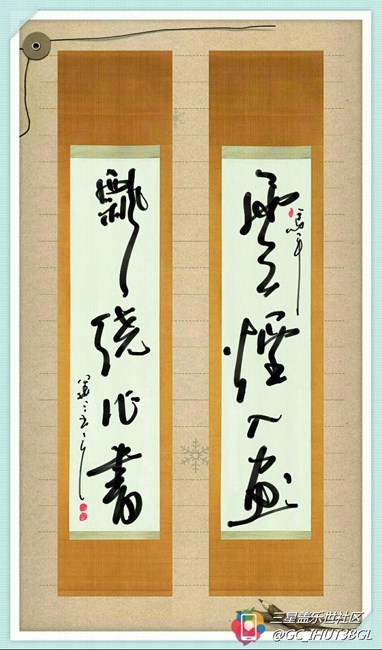 雲煙入畫
飄繞作書
三星盖乐世社区
@GC_IHUT3BGL